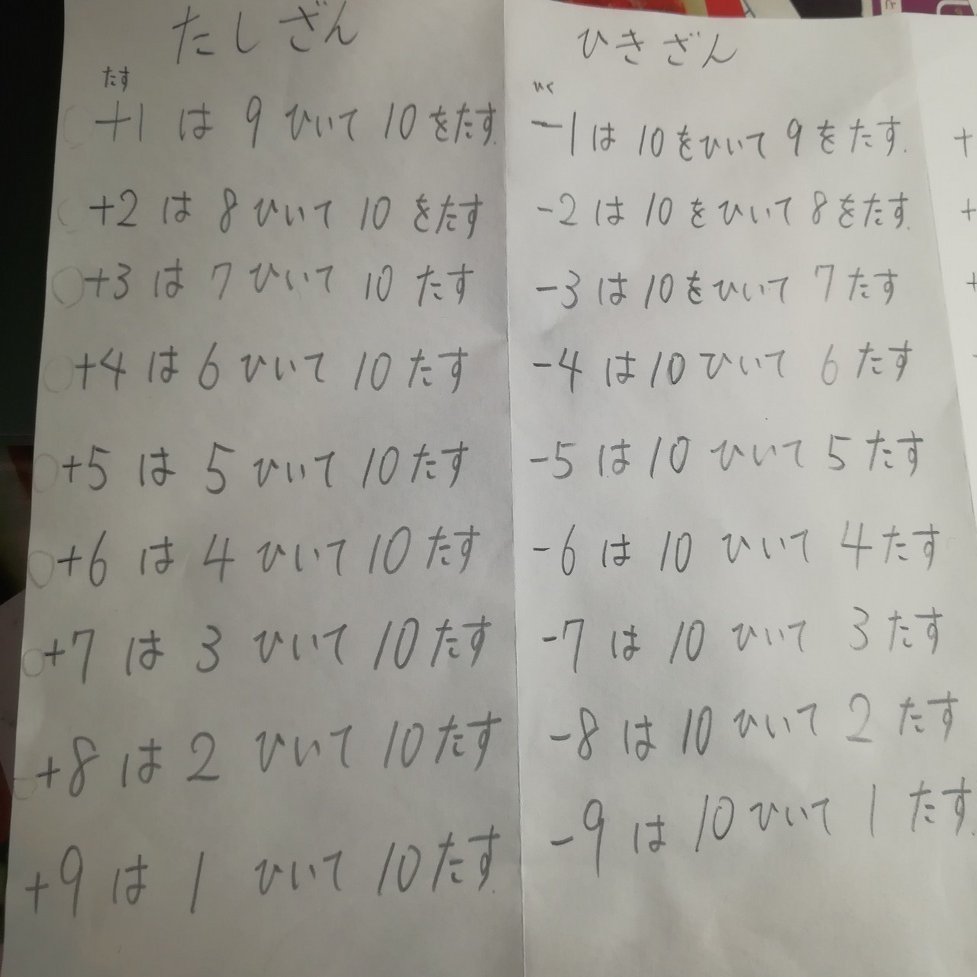 たしざん
たす
+1 は 9 ひいて 10 をたす.
+2 は 8 ひいて 10 をたす
+3 は 7 ひいて 10 たす
+4 は 6 ひいて 10 たす
+5 は 5 ひいて 10 たす
+6 は 4 ひいて 10 たす
+7 は 3 ひいて 10 たす
+8 は 2 ひいて 10 たす
+9 は 1 ひいて 10 たす.
ひきざん
ひく
-1 は 10 をひいて 9 をたす.
-2 は 10 をひいて 8 をたす.
-3 は 10 をひいて 7 たす
-4 は 10 ひいて 6 たす
-5 は 10 ひいて 5 たす
-6 は 10 ひいて 4 たす
-7 は 10 ひいて 3 たす
-8 は 10 ひいて 2 たす
-9 は 10 ひいて 1 たす
+
+
+